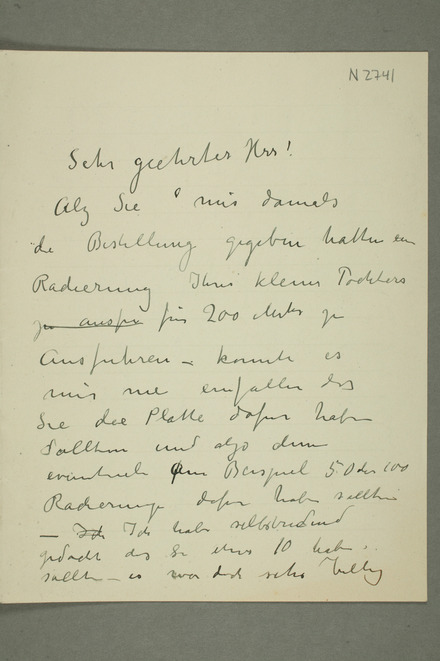 N 2741
Sehr geehrter Herr!
Alz Sie mir damals
die Bestellung gegeben hatten ein
Radierung Ihres kleinen Tochters
zu für 200 Mark zu
Ausfuhren – konnte es
mir nie einfallen das
Sie die Platte dafur haben
Sollten und also dann
eventuele zum Beispiel 50 oder 100
Radierunge dafur haben sollten
– Ich Ich habe selbstredend
gedacht das Sie etwa 10 haben
sollten – es war doch sehr billig